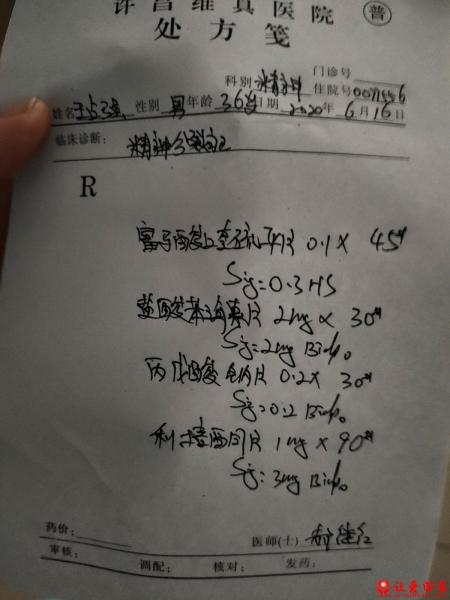 许昌维真医院
普
处方笺
门诊号
科别 精神 住院号
姓名 性别 男 年龄 36岁 日期 2020年 6月 16日
临床诊断： 精神分裂症
R
富马酸喹硫平片 0.1 × 45#
Sig: 0.3 HS
盐酸苯海索片 2mg × 30#
Sig: 2mg Bid po
丙戊酸钠片 0.2 × 30#
Sig: 0.2 Bid po
利培酮片 1mg × 90#
Sig: 3mg Bid po
药价：
医师(士)
审核： 调配： 核对： 发药：